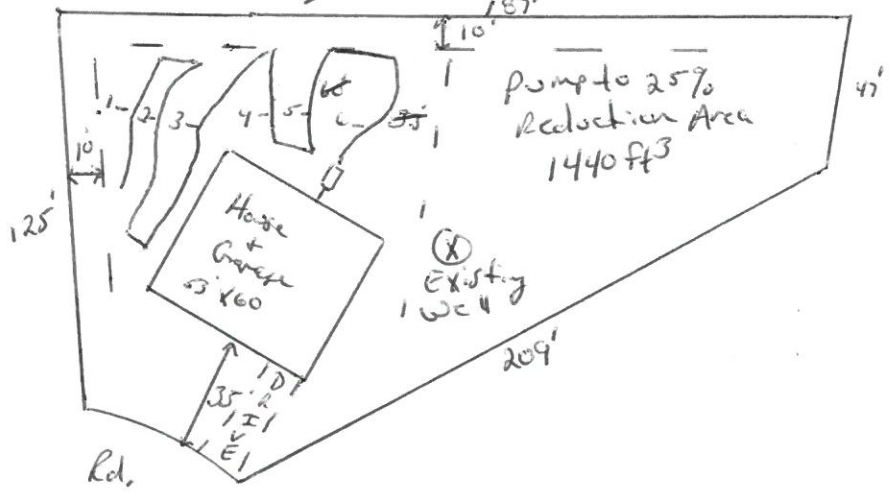 187'
10'
Pump to 25%
Reduction Area
1440 ft³
47'
1
2
3
4
5
6
10'
125'
House
+
Garage
60
Existing
Well
209'
35'
DRIVE
Rd.